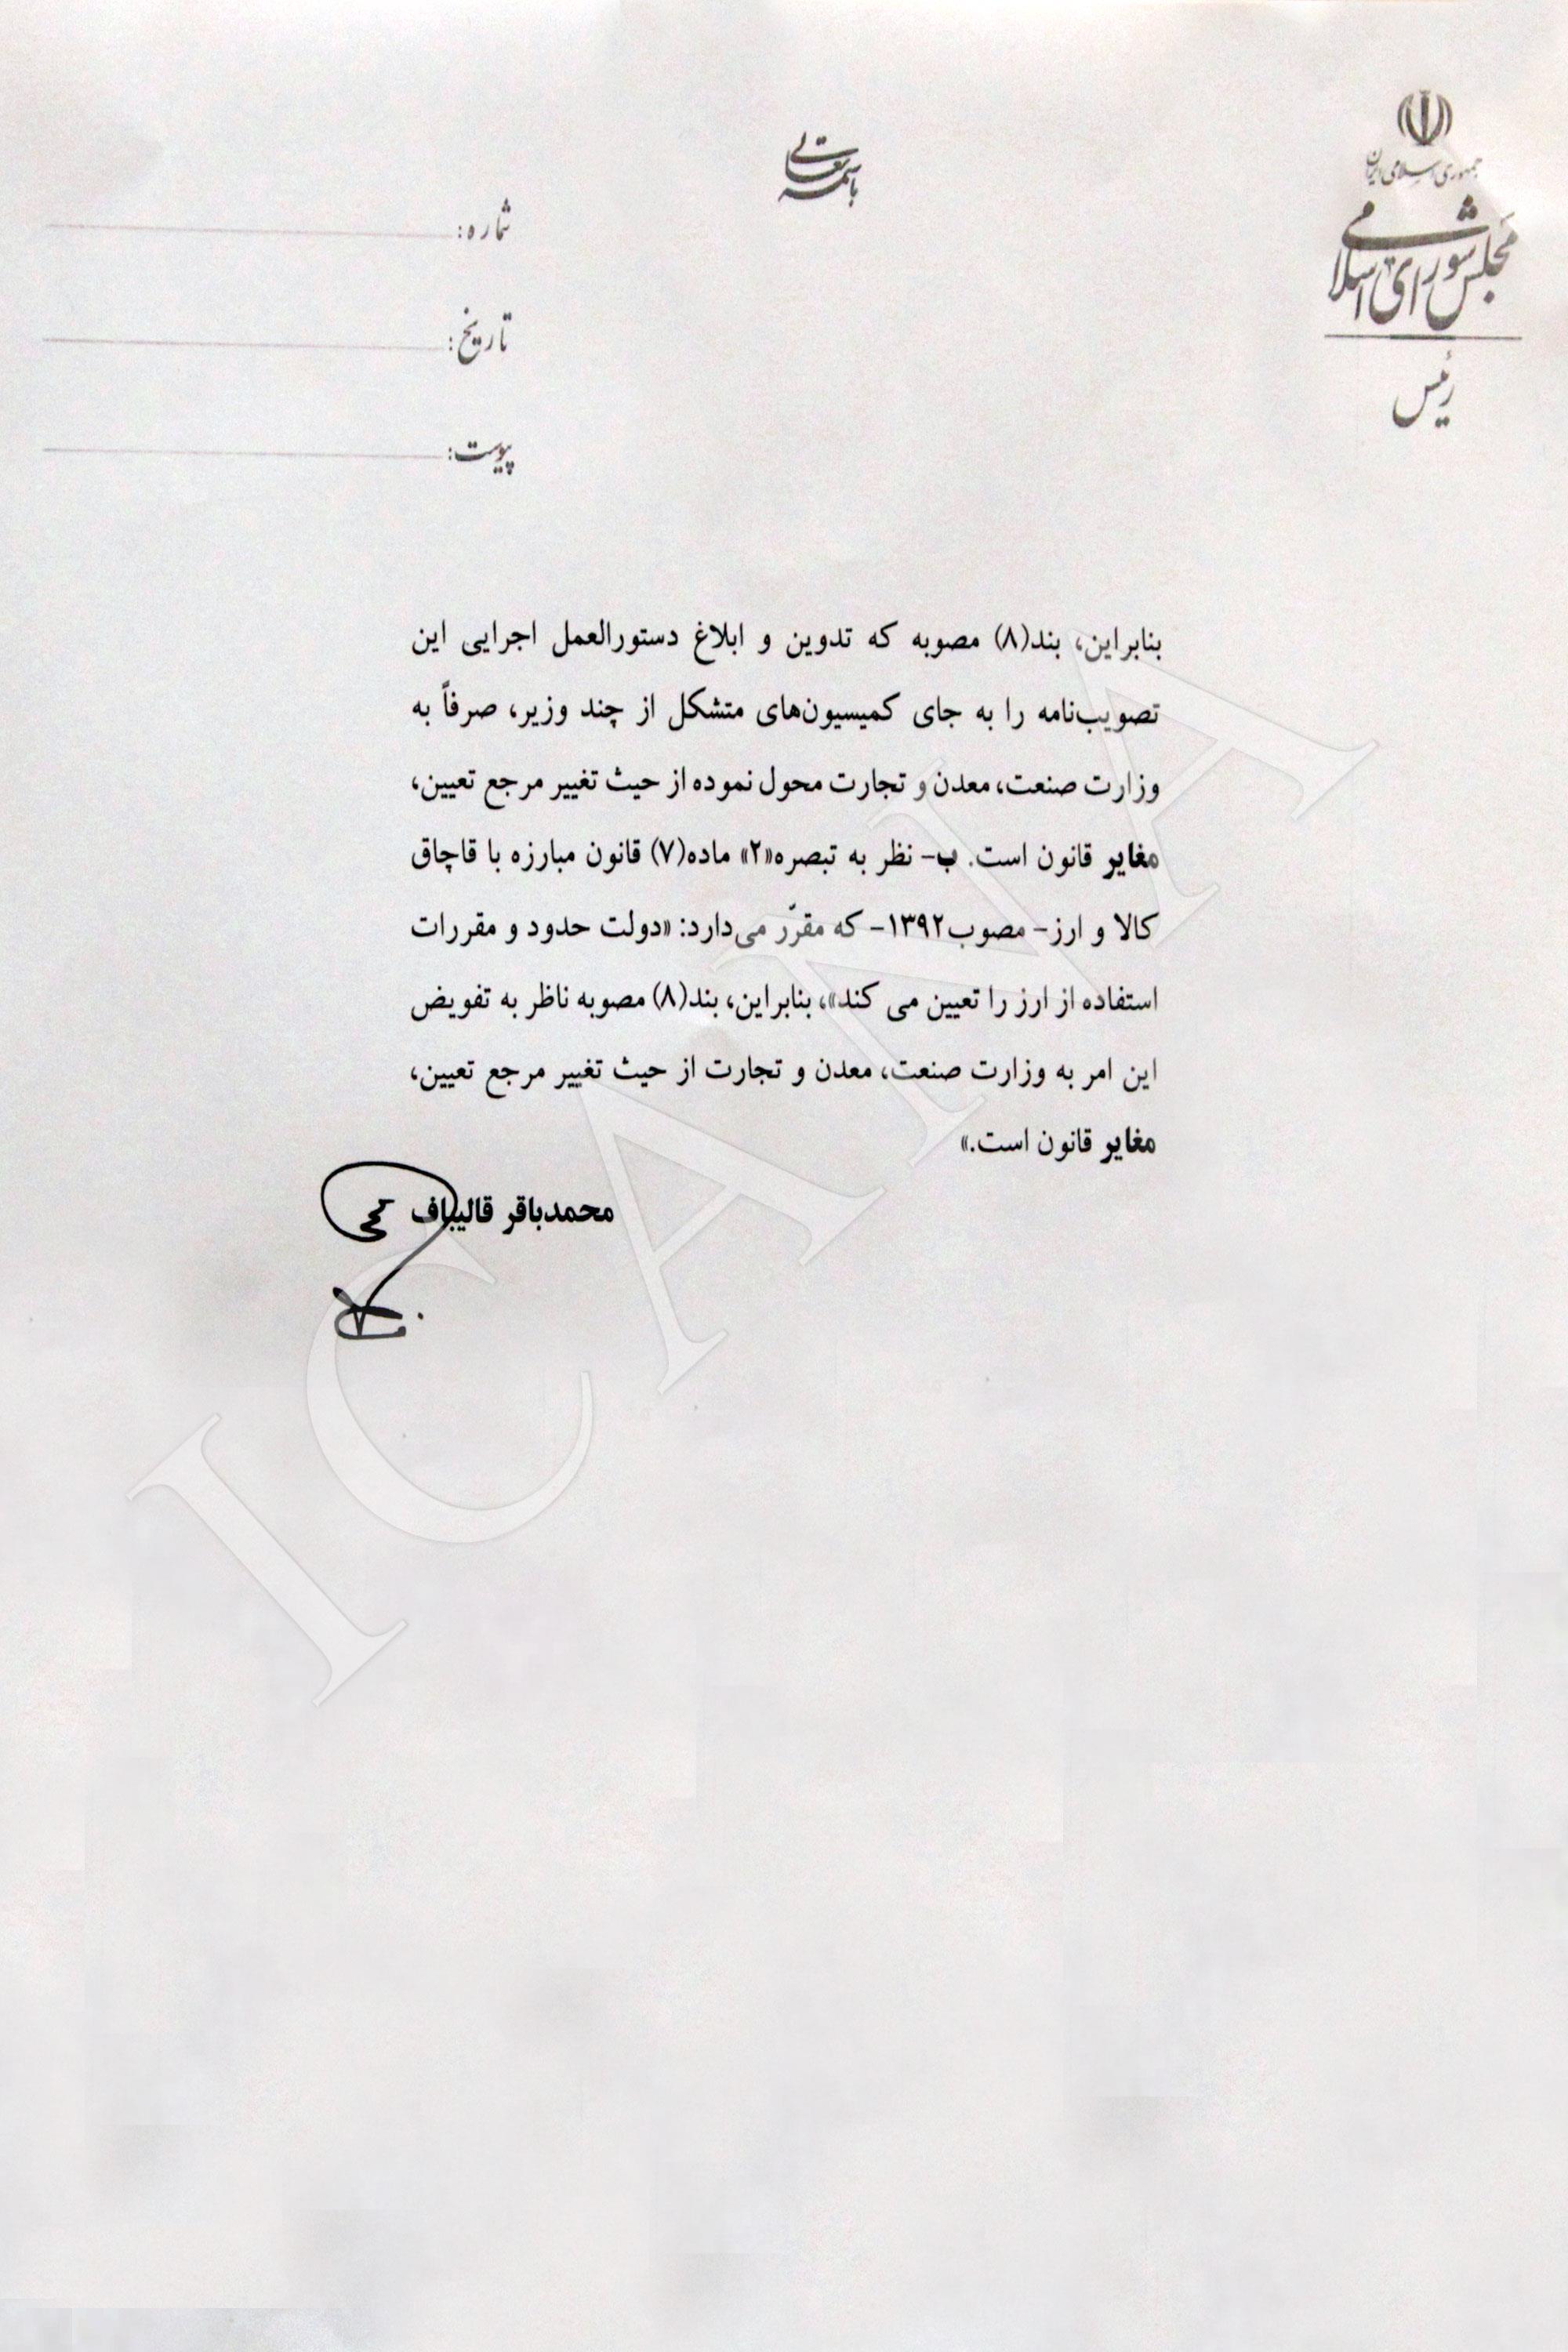 باسمه تعالی
جمهوری اسلامی ایران
مجلس شورای اسلامی
رئیس
شماره:
تاریخ:
پیوست:
بنابراین، بند(۸) مصوبه که تدوین و ابلاغ دستورالعمل اجرایی این
تصویب‌نامه را به جای کمیسیون‌های متشکل از چند وزیر، صرفاً به
وزارت صنعت، معدن و تجارت محول نموده از حیث تغییر مرجع تعیین،
مغایر قانون است. ب- نظر به تبصره«۲» ماده(۷) قانون مبارزه با قاچاق
کالا و ارز- مصوب۱۳۹۲- که مقرّر می‌دارد: «دولت حدود و مقررات
استفاده از ارز را تعیین می کند»، بنابراین، بند(۸) مصوبه ناظر به تفویض
این امر به وزارت صنعت، معدن و تجارت از حیث تغییر مرجع تعیین،
مغایر قانون است.»
محمدباقر قالیباف
ICANA